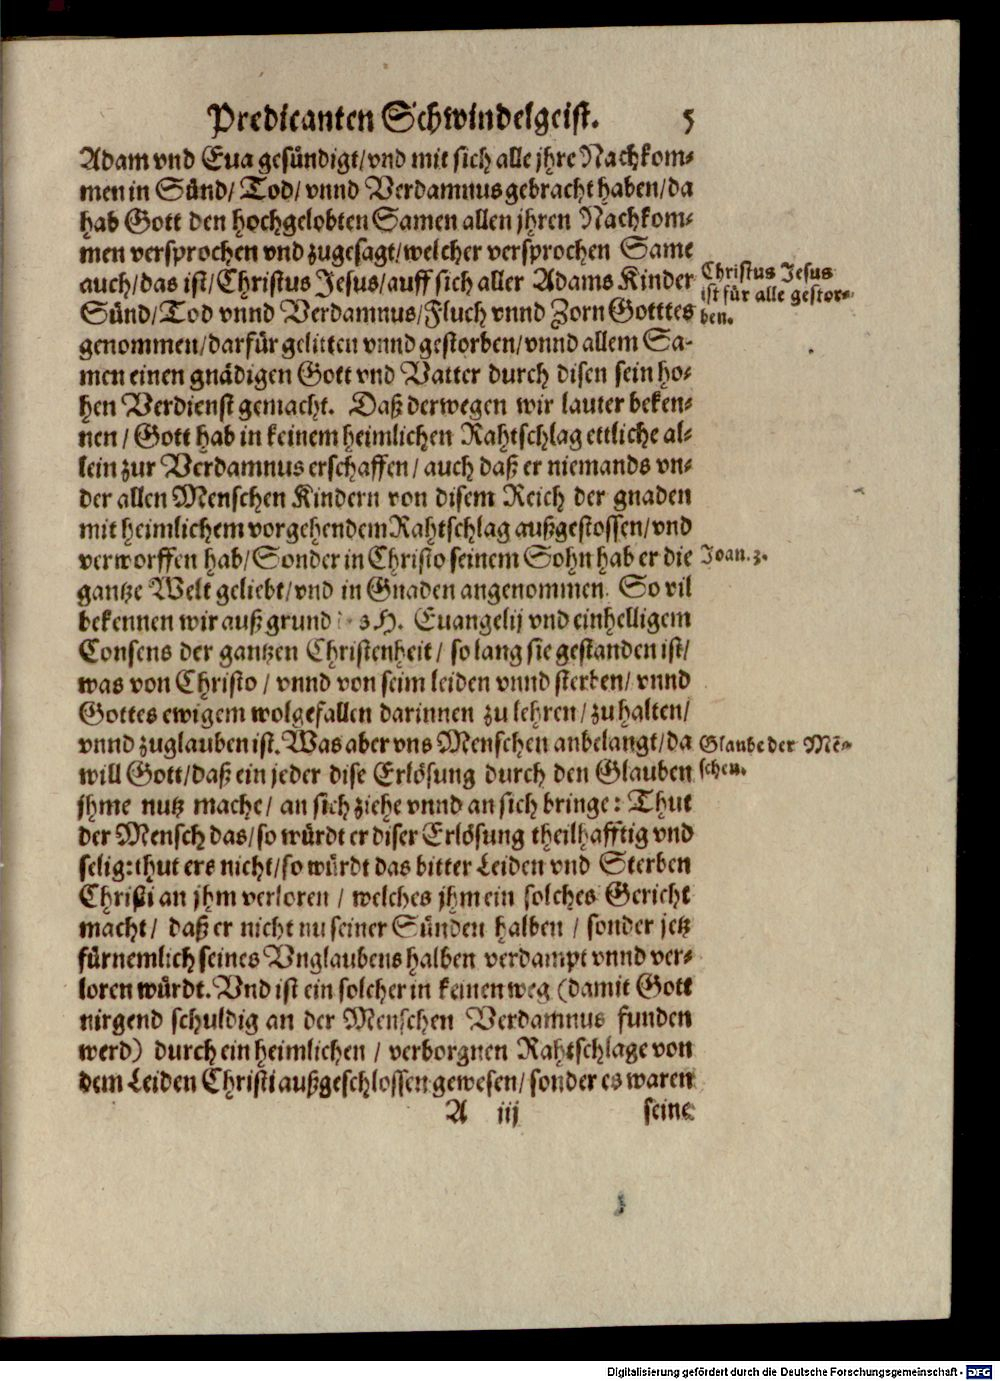 Predicanten Schwindelgeist. 5
Adam vnd Eua gesündigt/vnd mit sich alle jhre Nachkom⸗
men in Sünd/ Tod/ vnnd Verdamnus gebracht haben/da
hab Gott den hochgelobten Samen allen jhren Nachkom⸗
men versprochen vnd zugesagt/welcher versprochen Same
auch/das ist/Christus Jesus/auff sich aller Adams Kinder
Christus Jesus
ist für alle gestor⸗
ben.
Sünd/Tod vnnd Verdamnus/Fluch vnnd Zorn Gotttes
genommen/darfür gelitten vnnd gestorben/vnnd allem Sa-
men einen gnädigen Gott vnd Vatter durch disen sein ho⸗
hen Verdienst gemacht. Daß derwegen wir lauter beken⸗
nen/ Gott hab in keinem heimlichen Rahtschlag ettliche al⸗
lein zur Verdamnus erschaffen/ auch daß er niemands vn⸗
der allen Menschen Kindern von disem Reich der gnaden
mit heimlichem vorgehendem Rahtschlag außgestossen/vnd
verworffen hab/Sonder in Christo seinem Sohn hab er die
Joan. 3.
gantze Welt geliebt/vnd in Gnaden angenommen. So vil
bekennen wir auß grund s H. Euangelij vnd einhelligem
Consens der gantzen Christenheit/ so lang sie gestanden ist/
was von Christo/ vnnd von seim leiden vnnd sterben/ vnnd
Gottes ewigem wolgefallen darinnen zu lehren/ zu halten/
vnnd zuglauben ist. Was aber vns Menschen anbelangt/da
Glaube der Mē⸗
schen.
will Gott/daß ein jeder dise Erlösung durch den Glauben
jhme nutz mache/ an sich ziehe vnnd an sich bringe: Thut
der Mensch das/so würdt er diser Erlösung theilhafftig vnd
selig: thut ers nicht/so würdt das bitter Leiden vnd Sterben
Christi an jhm verloren/ welches jhm ein solches Gericht
macht/ daß er nicht nu seiner Sünden halben/ sonder jetz
fürnemlich seines Vnglaubens halben verdampt vnnd ver⸗
loren würdt. Vnd ist ein solcher in keinen weg (damit Gott
nirgend schuldig an der Menschen Verdamnus funden
werd) durch ein heimlichen/ verborgnen Rahtschlage von
dem Leiden Christi außgeschlossen gewesen/ sonder es waren
A iij seine
Digitalisierung gefördert durch die Deutsche Forschungsgemeinschaft - DFG